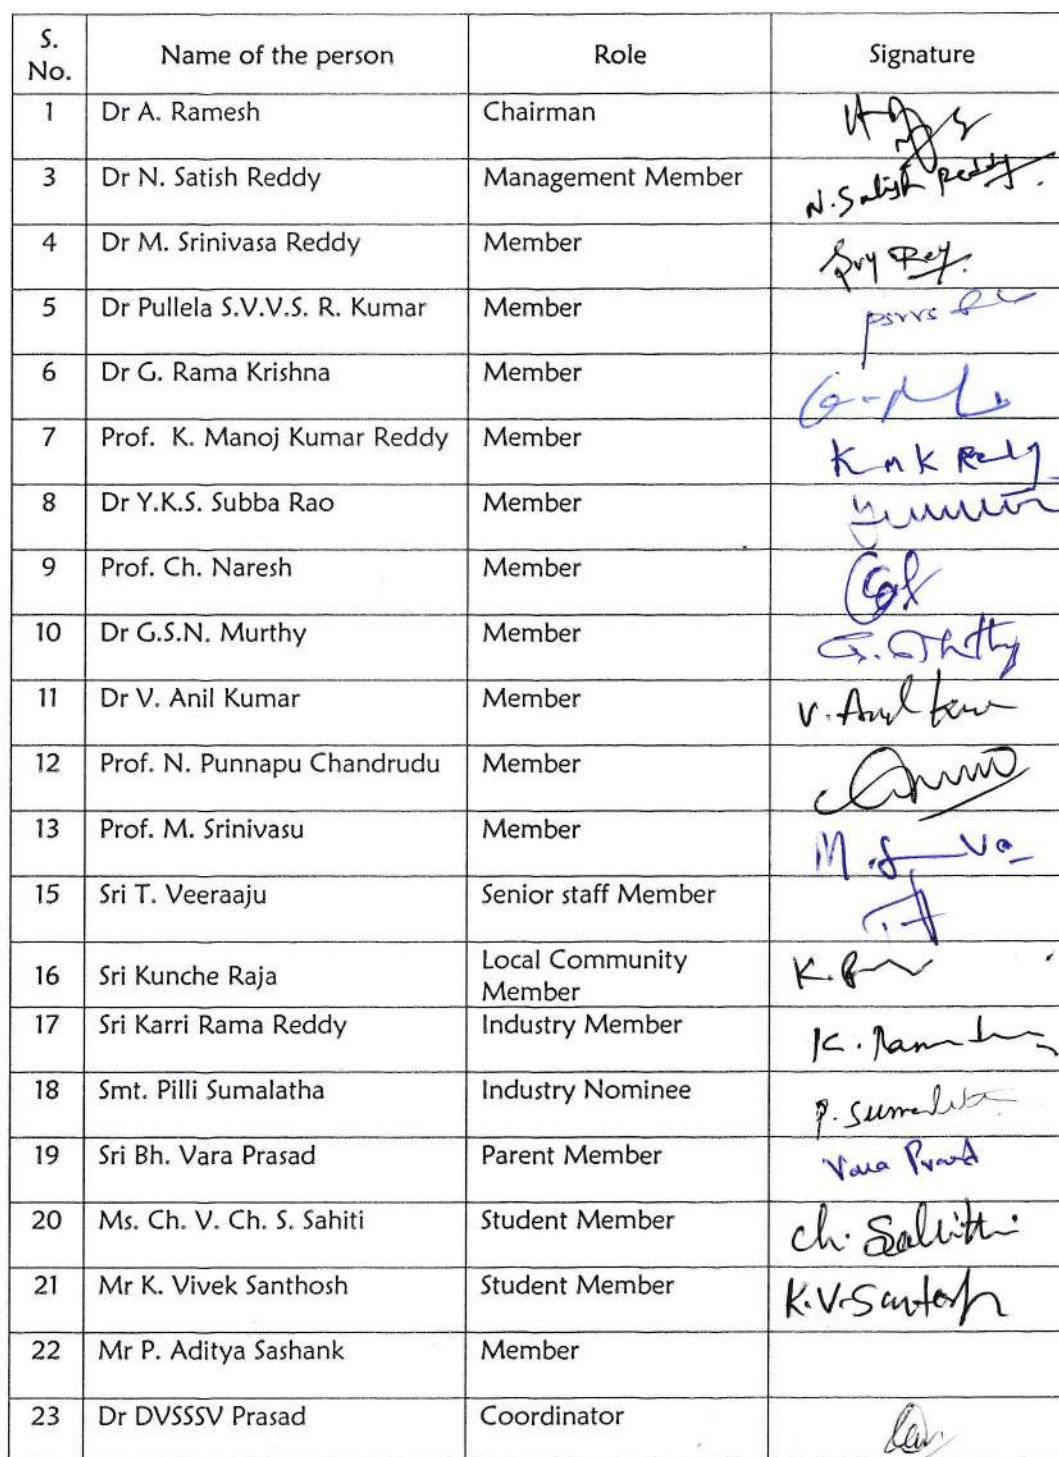 S. No. Name of the person Role Signature
1 Dr A. Ramesh Chairman
3 Dr N. Satish Reddy Management Member N. Satish Reddy
4 Dr M. Srinivasa Reddy Member
5 Dr Pullela S.V.V.S. R. Kumar Member
6 Dr G. Rama Krishna Member
7 Prof. K. Manoj Kumar Reddy Member
8 Dr Y.K.S. Subba Rao Member
9 Prof. Ch. Naresh Member
10 Dr G.S.N. Murthy Member
11 Dr V. Anil Kumar Member
12 Prof. N. Punnapu Chandrudu Member
13 Prof. M. Srinivasu Member
15 Sri T. Veeraaju Senior staff Member
16 Sri Kunche Raja Local Community Member
17 Sri Karri Rama Reddy Industry Member
18 Smt. Pilli Sumalatha Industry Nominee
19 Sri Bh. Vara Prasad Parent Member Vara Prasad
20 Ms. Ch. V. Ch. S. Sahiti Student Member
21 Mr K. Vivek Santhosh Student Member K.V.Santosh
22 Mr P. Aditya Sashank Member
23 Dr DVSSSV Prasad Coordinator